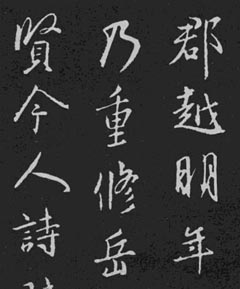 郡越明年
乃重修岳
賢今人詩